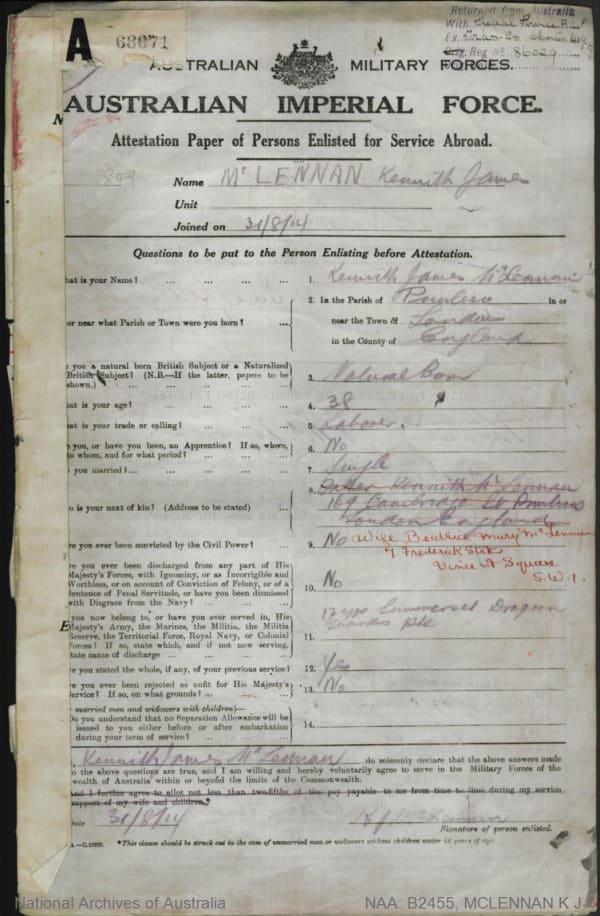 Returned from Australia
With
Ex.
Reg No 86029
A
63071
AUSTRALIAN MILITARY FORCES.
AUSTRALIAN IMPERIAL FORCE.
Attestation Paper of Persons Enlisted for Service Abroad.
809
Name McLENNAN Kennith James
Unit
Joined on 31/8/14
Questions to be put to the Person Enlisting before Attestation.
hat is your Name? ... ... ... ... 1. Kennith James McLennan
or near what Parish or Town were you born? ... 2. In the Parish of Pimlico in or
near the Town of London
in the County of England
you a natural born British Subject or a Naturalized
British Subject? (N.B.—If the latter, papers to be
shown.) ... ... ... ... 3. Natural Born
hat is your age? ... ... ... ... 4. 38
hat is your trade or calling? ... ... ... 5. Labourer.
you, or have you been, an Apprentice? If so, where,
to whom, and for what period? ... ... 6. No
you married? ... ... ... ... 7. Single
o is your next of kin? (Address to be stated) ... 8. Father Kennith McLennan
169 Cambridge St Pimlico
London England
re you ever been convicted by the Civil Power? ... 9. No
Wife Beatrice Mary McLennan
7. Frederick
Vincent Square
S.W.1.
re you ever been discharged from any part of His
Majesty's Forces, with Ignominy, or as Incorrigible and
Worthless, or on account of Conviction of Felony, or of a
Sentence of Penal Servitude, or have you been dismissed
with Disgrace from the Navy? ... ... 10. No
you now belong to, or have you ever served in, His
Majesty's Army, the Marines, the Militia, the Militia
Reserve, the Territorial Force, Royal Navy, or Colonial
Forces? If so, state which, and if not now serving,
state cause of discharge ... ... ... 11. 12 yrs Dragoon
Guards
re you stated the whole, if any, of your previous service? 12. Yes
re you ever been rejected as unfit for His Majesty's
Service? If so, on what grounds? ... ... 13. No
married men and widowers with children)—
Do you understand that no Separation Allowance will be
issued to you either before or after embarkation
during your term of service? ... ... ... 14.
Kennith James McLennan do solemnly declare that the above answers made
to the above questions are true, and I am willing and hereby voluntarily agree to serve in the Military Forces of the
wealth of Australia within or beyond the limits of the Commonwealth.
And I further agree to allot not less than two-fifths of the pay payable to me from time to time during my service
support of my wife and children.
Date 31/8/14 K J McLennan
Signature of person enlisted.
*This clause should be struck out in the case of unmarried men or widowers without children under 18 years of age.
National Archives of Australia NAA: B2455, MCLENNAN K J